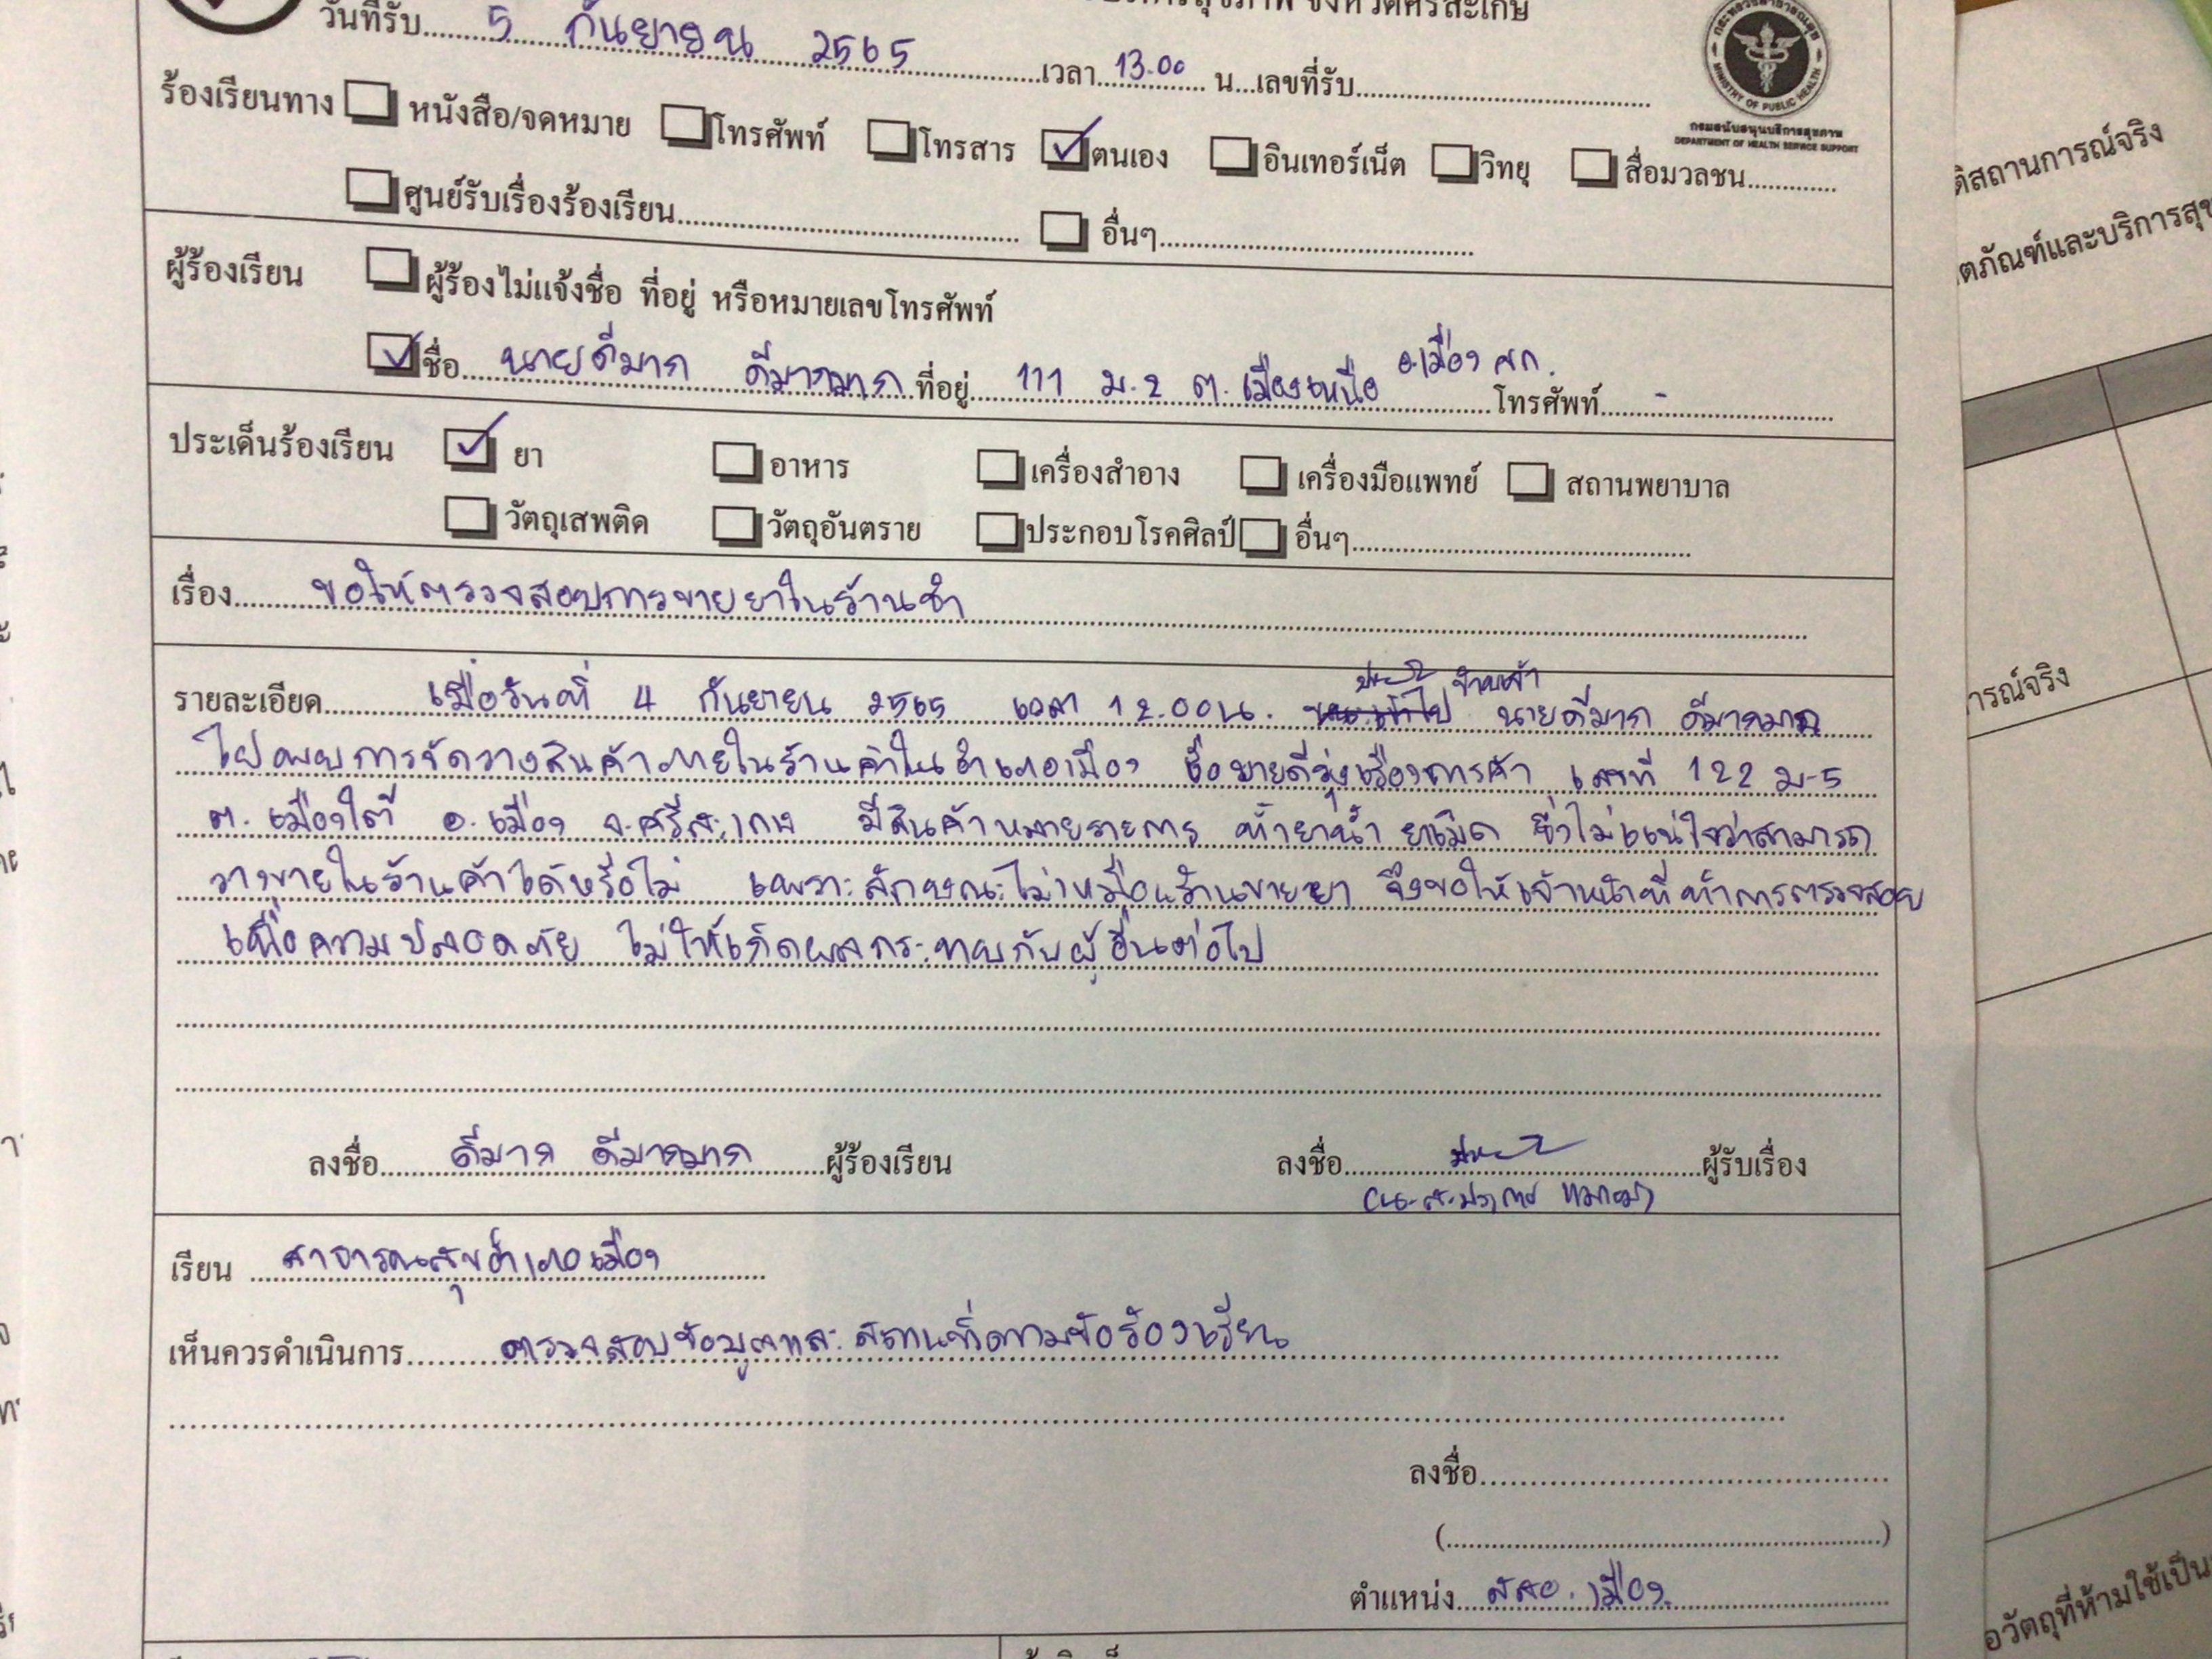 วันที่รับ 5 กันยายน 2565 เวลา 13.00 น. เลขที่รับ
กระทรวงสาธารณสุข
MINISTRY OF PUBLIC HEALTH
กรมสนับสนุนบริการสุขภาพ
DEPARTMENT OF HEALTH SERVICE SUPPORT
ร้องเรียนทาง หนังสือ/จดหมาย โทรศัพท์ โทรสาร ตนเอง อินเทอร์เน็ต วิทยุ สื่อมวลชน
ศูนย์รับเรื่องร้องเรียน อื่นๆ
ผู้ร้องเรียน ผู้ร้องไม่แจ้งชื่อ ที่อยู่ หรือหมายเลขโทรศัพท์
ชื่อ นายดีมาก ดีมากมาก ที่อยู่ 111 ม.2 ต. เมืองเหนือ อ.เมือง ศก. โทรศัพท์ -
ประเด็นร้องเรียน ยา อาหาร เครื่องสำอาง เครื่องมือแพทย์ สถานพยาบาล
วัตถุเสพติด วัตถุอันตราย ประกอบโรคศิลป์ อื่นๆ
เรื่อง ขอให้ตรวจสอบการขายยาในร้านชำ
รายละเอียด เมื่อวันที่ 4 กันยายน 2565 เวลา 12.00น. ข้าพเจ้า นายดีมาก ดีมากมาก
ไปพบการจัดวางสินค้าภายในร้านค้าในอำเภอเมือง ชื่อขายดีรุ่งเรืองการค้า เลขที่ 122 ม.5
ต. เมืองใต้ อ. เมือง จ.ศรีสะเกษ มีสินค้าหลายรายการ ทั้งยาน้ำ ยาเม็ด ซึ่งไม่แน่ใจว่าสามารถ
วางขายในร้านค้าได้หรือไม่ เพราะลักษณะไม่เหมือนร้านขายยา จึงขอให้เจ้าหน้าที่ทำการตรวจสอบ
เพื่อความปลอดภัย ไม่ให้เกิดผลกระทบกับผู้อื่นต่อไป
ลงชื่อ ดีมาก ดีมากมาก ผู้ร้องเรียน ลงชื่อ ผู้รับเรื่อง
เรียน สาธารณสุขอำเภอเมือง
เห็นควรดำเนินการ ตรวจสอบข้อมูลและสถานที่ตามข้อร้องเรียน
ลงชื่อ
(
)
ตำแหน่ง สสอ. เมือง
ารณ์จริง